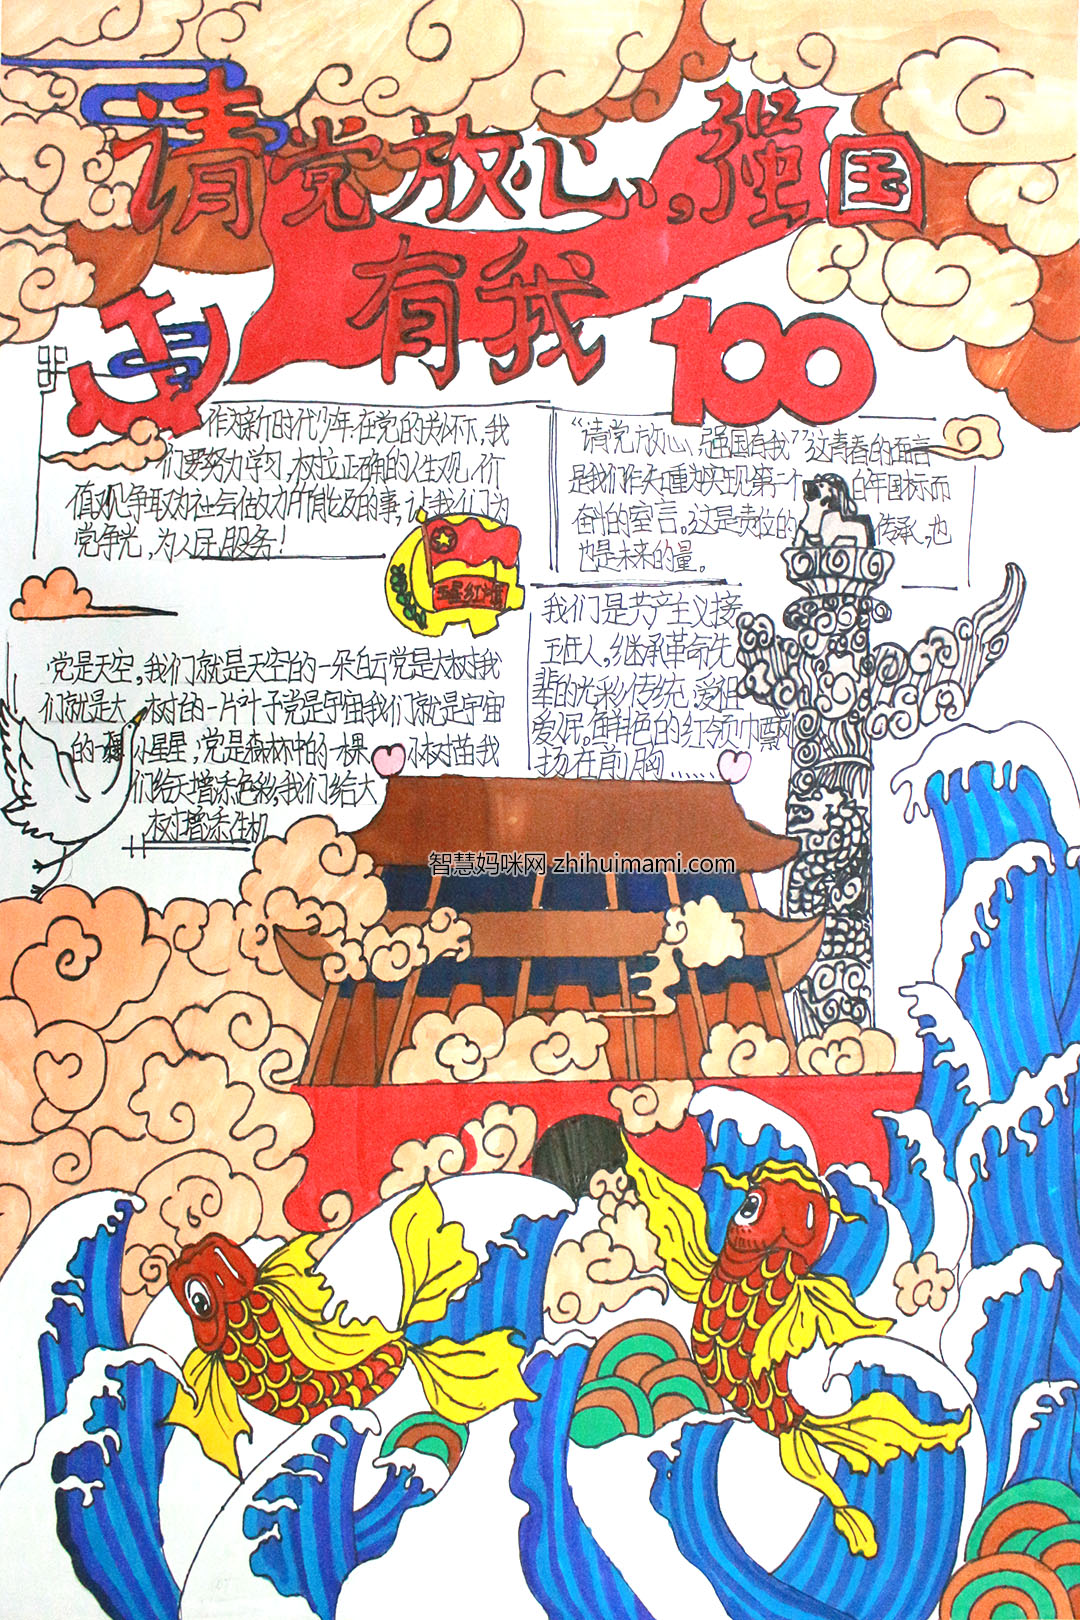 请党放心,强国
有我
100
作为新时代少年.在党的关怀下,我
们要努力学习,树立正确的人生观,价
值观,争取为社会做力所能及的事,让我们为
党争光,为人民服务!
“请党放心,强国有我”这青春的
是我们作
奋斗的宣言。这是 的 传承,也
也是未来的 量。
五星红旗
我们是共产主义接
班人,继承革命先
辈的光彩传统.爱祖
爱人民.鲜色的红领巾飘
扬在前胸……
党是天空,我们就是天空的一朵白云党是大树我
们就是大树的一片叶子党是宇宙我们就是宇宙
的一颗小星星,党是森林中的一棵小树苗我
们给天增添色彩,我们给大
树增添生机
智慧妈咪网 zhihuimami.com